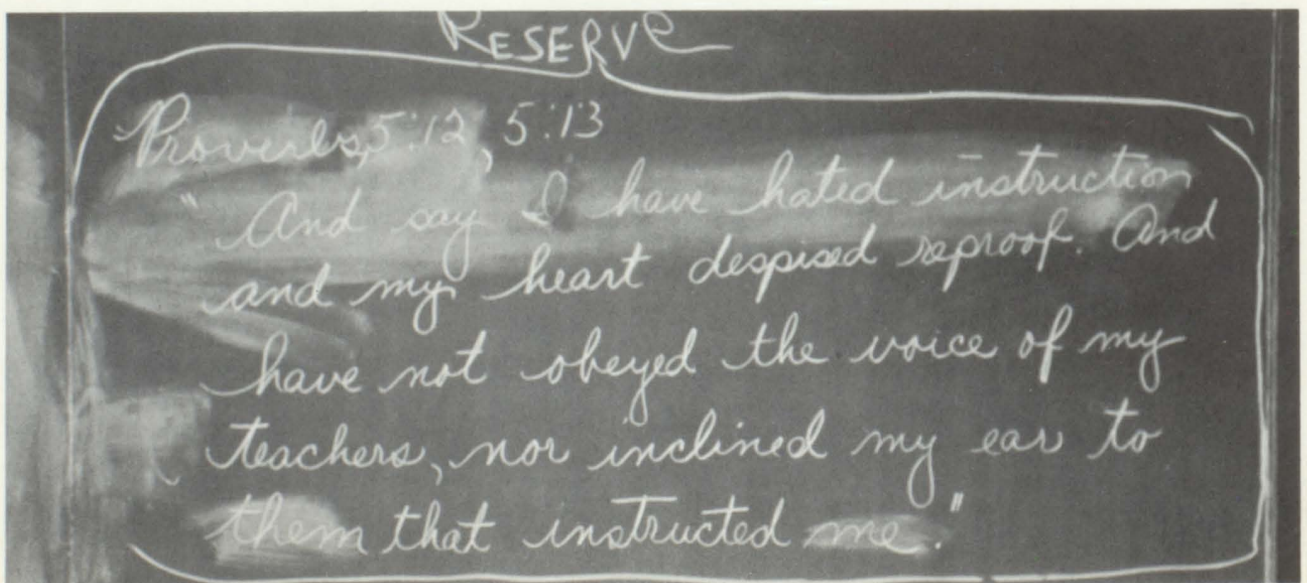 RESERVE
Proverbs, 5:12, 5:13
"And say I have hated instruction
and my heart despised reproof. And
have not obeyed the voice of my
teachers, nor inclined my ear to
them that instructed me."